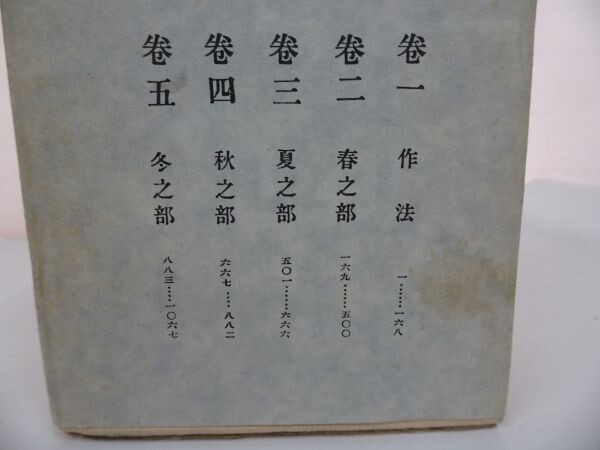 卷一 作法 一……一六八
卷二 春之部 一六九……五〇〇
卷三 夏之部 五〇一……六六六
卷四 秋之部 六六七……八八二
卷五 冬之部 八八三……一〇六七